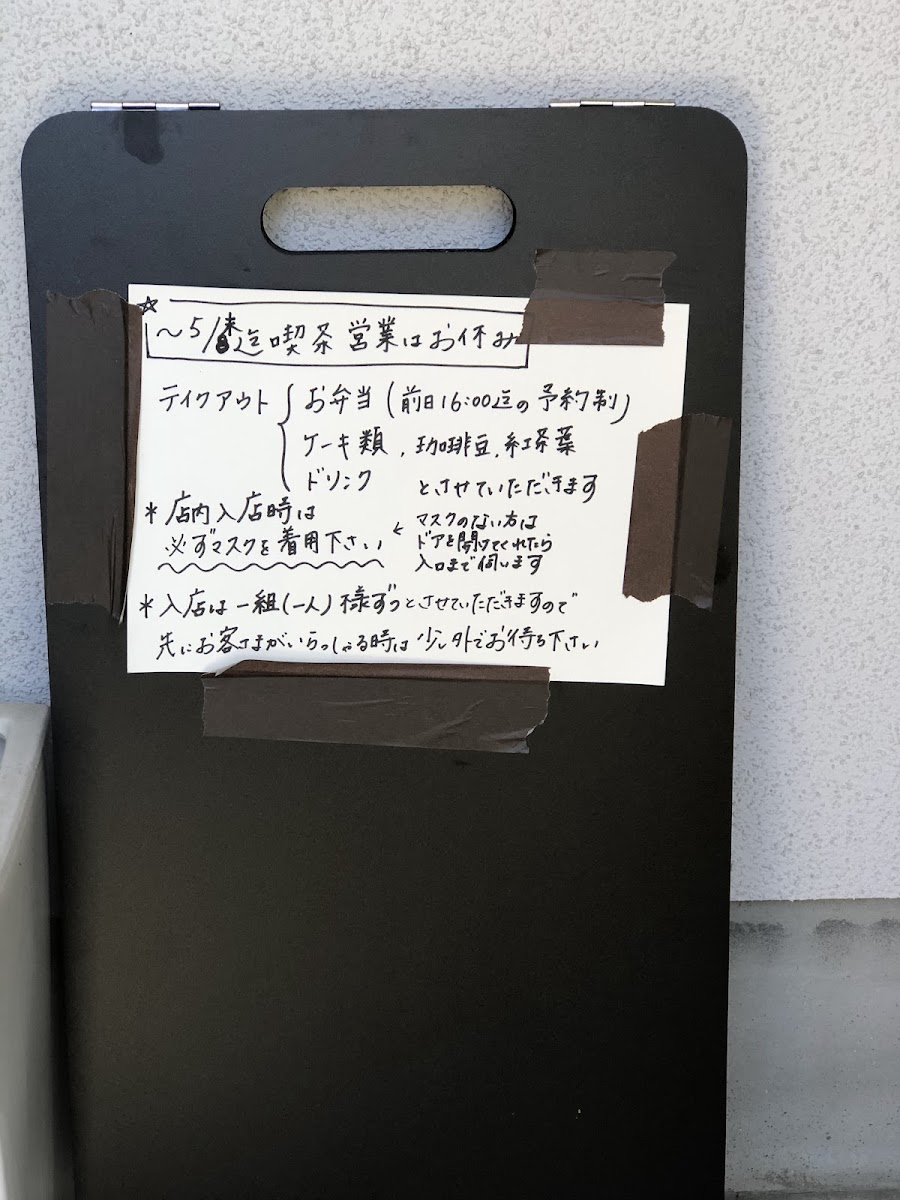 ☆
~5/末迄喫茶営業はお休み
テイクアウト{お弁当(前日16:00迄の予約制)
ケーキ類、珈琲豆、紅茶葉
ドリンク とさせていただきます
*店内入店時は
必ずマスクを着用下さい
← マスクのない方は
ドアを開けてくれたら
入口まで伺います
*入店は一組(一人)様ずつとさせていただきますので
先にお客さまがいらっしゃる時は少し外でお待ち下さい